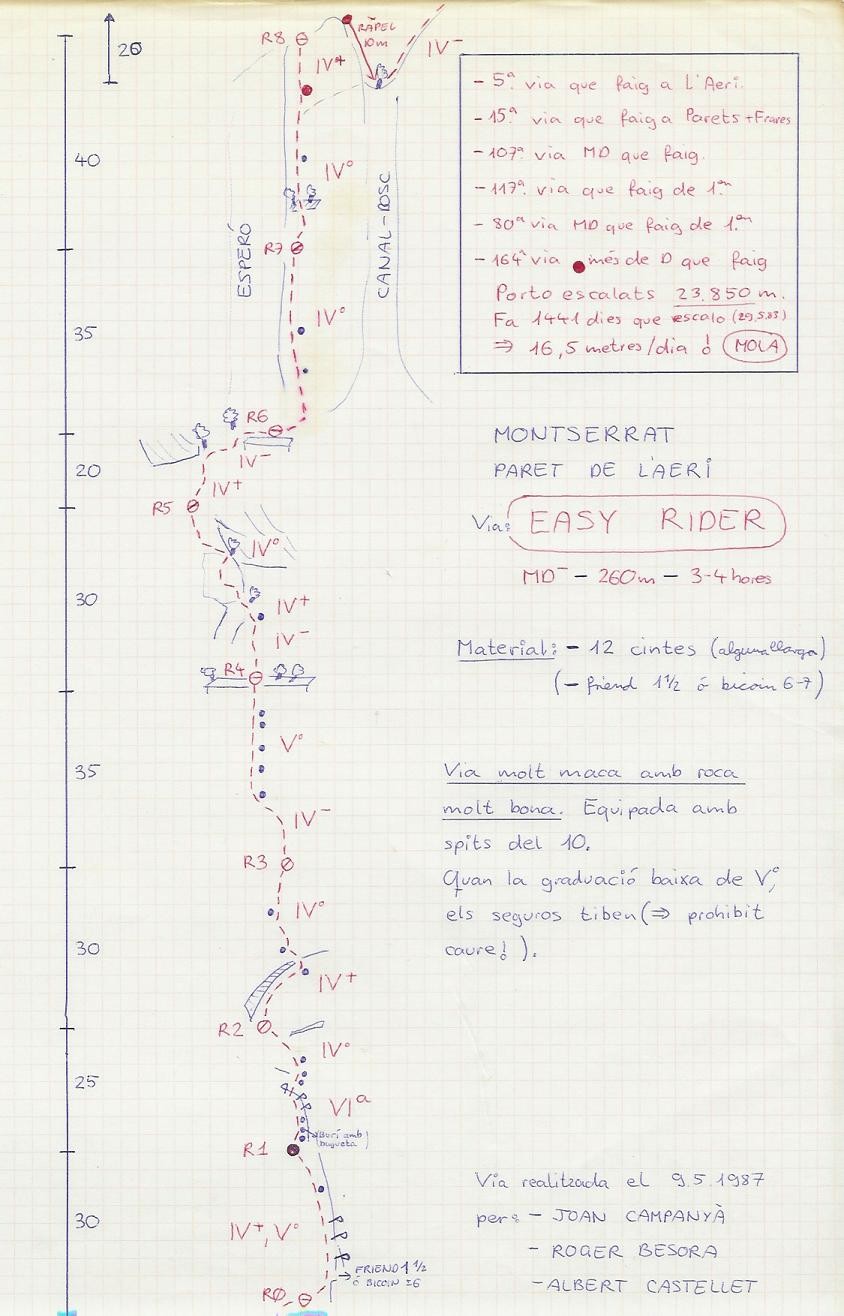 R8
RÀPEL
10m
IV-
26
IV+
40
IVº
ESPERÓ
CANAL-BOSC
R7
35
IVº
R6
IV-
20
IV+
R5
IVº
30
IV+
IV-
R4
Vº
35
IV-
R3
IVº
30
IV+
R2
IVº
25
VIa
(Burí amb
bugueta)
R1
30
IV+, Vº
FRIEND 1 1/2
ó BICOIN ≥6
RØ
- 5ª via que faig a L'Aeri.
- 15ª via que faig a Parets + Frares
- 107ª via MD que faig.
- 117ª via que faig de 1er
- 80ª via MD que faig de 1er
- 164ª via més de D que faig
Porto escalats 23.850 m.
Fa 1441 dies que escalo (29.5.83)
⇒ 16,5 metres/dia ! MOLA
MONTSERRAT
PARET DE L'AERI
Via: EASY RIDER
MD- - 260m - 3-4 hores
Material: - 12 cintes (alguna llarga)
(- friend 1 1/2 ó bicoin 6-7)
Via molt maca amb roca
molt bona. Equipada amb
spits del 10.
Quan la graduació baixa de Vº,
els seguros tiben (⇒ prohibit
caure! ).
Via realitzada el 9.5.1987
per: - JOAN CAMPANYÀ
- ROGER BESORA
- ALBERT CASTELLET